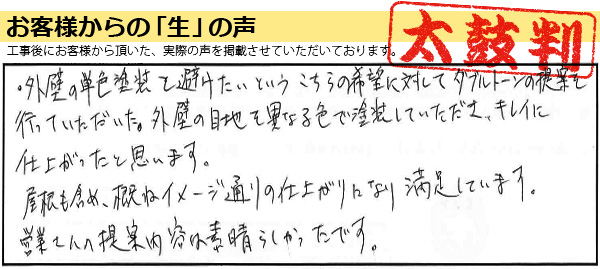 お客様からの「生」の声
太鼓判
工事後にお客様から頂いた、実際の声を掲載させていただいております。
・外壁の単色塗装を避けたいというこちらの希望に対してダブルトーンの提案を
行っていただいた。外壁の目地を異なる色で塗装していただき、キレイに
仕上がったと思います。
屋根も含め、概ねイメージ通りの仕上がりになり満足しています。
営業さんの提案内容は素晴らしかったです。